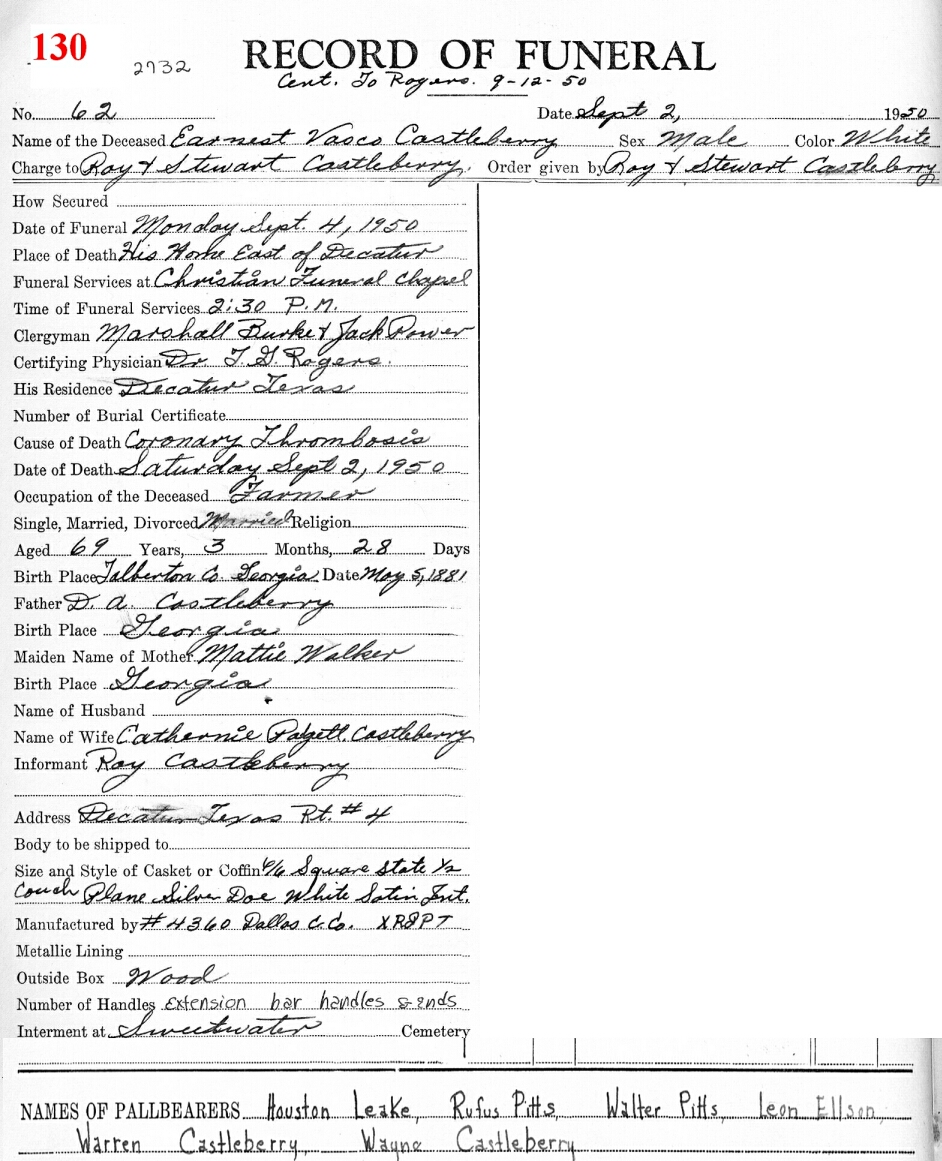 130
2732
RECORD OF FUNERAL
Cert. To Rogers. 9-12-50
No. 62 Date Sept 2, 1950
Name of the Deceased Earnest Vasco Castleberry Sex Male Color White
Charge to Roy & Stewart Castleberry. Order given by Roy & Stewart Castleberry
How Secured
Date of Funeral Monday Sept. 4, 1950
Place of Death His Home East of Decatur
Funeral Services at Christian Funeral Chapel
Time of Funeral Services 2:30 P.M.
Clergyman Marshall Burke & Jack Power
Certifying Physician Dr. T. G. Rogers.
His Residence Decatur Texas
Number of Burial Certificate
Cause of Death Coronary Thrombosis
Date of Death Saturday Sept 2, 1950
Occupation of the Deceased Farmer
Single, Married, Divorced Married Religion
Aged 69 Years, 3 Months, 28 Days
Birth Place Talberton Co. Georgia Date May 5, 1881
Father D. A. Castleberry
Birth Place Georgia
Maiden Name of Mother Mattie Walker
Birth Place Georgia
Name of Husband
Name of Wife Cathernie Padgett Castleberry
Informant Roy Castleberry
Address Decatur Texas Rt. # 4
Body to be shipped to
Size and Style of Casket or Coffin 6/6 Square State 1/2
Couch Plane Silver Doe White Satin Int.
Manufactured by # 4360 Dallas C. Co. XR8PT
Metallic Lining
Outside Box Wood
Number of Handles Extension bar handles & ends
Interment at Sweetwater Cemetery
NAMES OF PALLBEARERS Houston Leake, Rufus Pitts, Walter Pitts, Leon Ellson,
Warren Castleberry, Wayne Castleberry